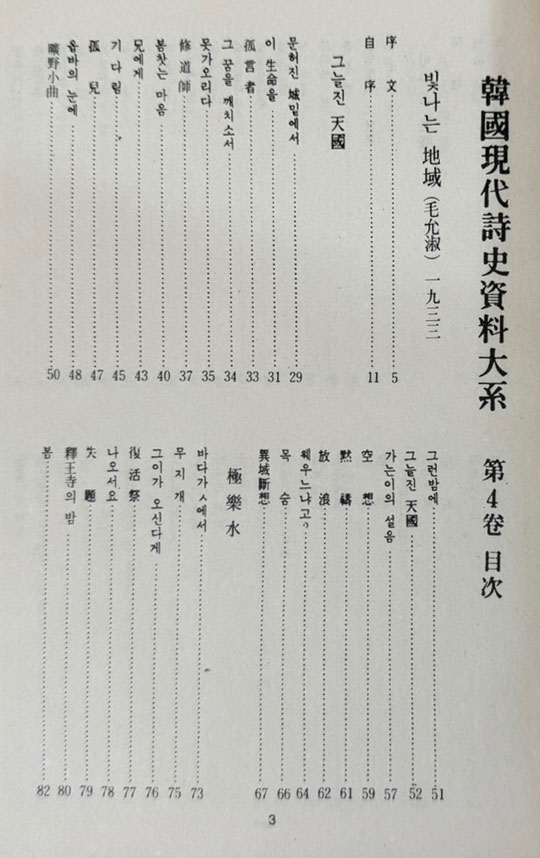 韓國現代詩史資料大系 第4卷 目次
빛나는 地域 (毛允淑) 一九三三
序文 5
自序 11
그늘진 天國
문허진 城밑에서 29
이 生命을 31
孤言者 33
그 꿈을 깨치소서 34
못가오리다 35
修道師 37
봄찻는 마음 40
兄에게 43
기다림 45
孤兒 47
옵바의 눈에 48
曠野小曲 50
그런밤에 51
그늘진 天國 52
가는이의 설음 57
空想 59
黙禱 61
放浪 62
웨우느냐고 64
목숨 66
異域斷想 67
極樂水
바다가ㅅ에서 73
무지개 75
그이가 오신다게 76
復活祭 77
나오서요 78
失題 79
釋王寺의 밤 80
봄 82
3